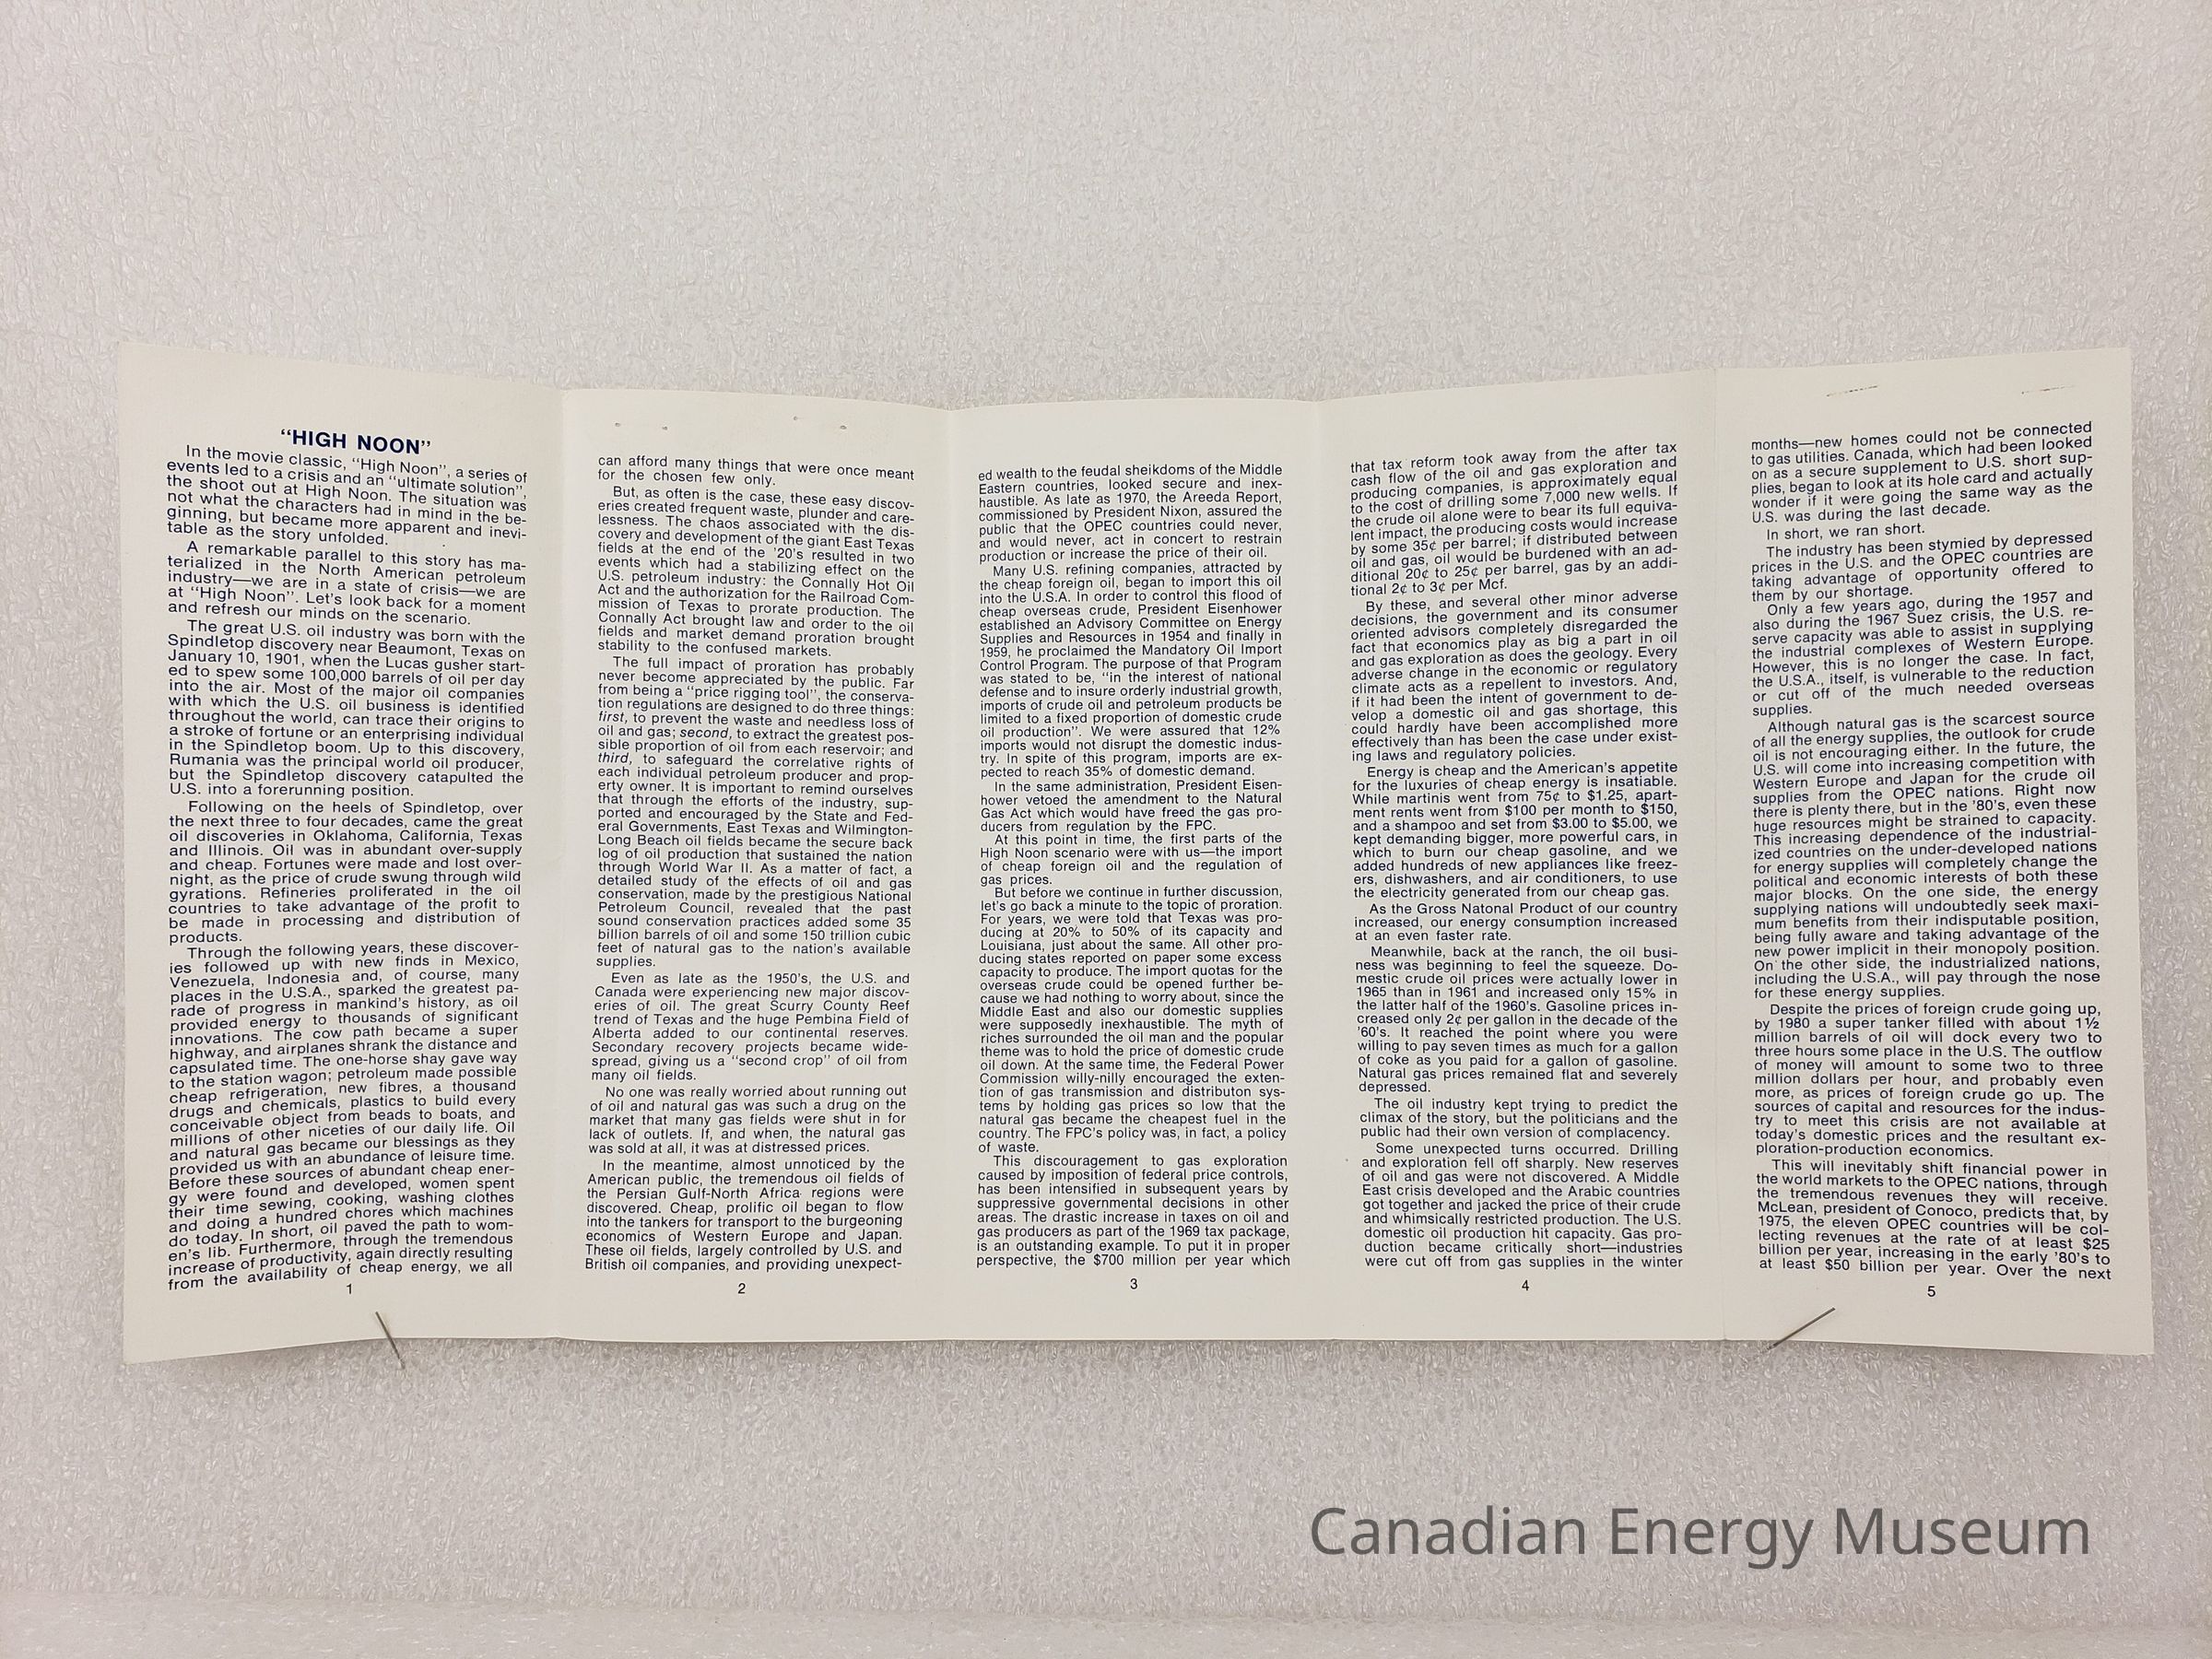 “HIGH NOON”
In the movie classic, “High Noon”, a series of
events led to a crisis and an “ultimate solution”,
the shoot out at High Noon. The situation was
not what the characters had in mind in the be-
ginning, but became more apparent and inevi-
table as the story unfolded.
A remarkable parallel to this story has ma-
terialized in the North American petroleum
industry—we are in a state of crisis—we are
at “High Noon”. Let’s look back for a moment
and refresh our minds on the scenario.
The great U.S. oil industry was born with the
Spindletop discovery near Beaumont, Texas on
January 10, 1901, when the Lucas gusher start-
ed to spew some 100,000 barrels of oil per day
into the air. Most of the major oil companies
with which the U.S. oil business is identified
throughout the world, can trace their origins to
a stroke of fortune or an enterprising individual
in the Spindletop boom. Up to this discovery,
Rumania was the principal world oil producer,
but the Spindletop discovery catapulted the
U.S. into a forerunning position.
Following on the heels of Spindletop, over
the next three to four decades, came the great
oil discoveries in Oklahoma, California, Texas
and Illinois. Oil was in abundant over-supply
and cheap. Fortunes were made and lost over-
night, as the price of crude swung through wild
gyrations. Refineries proliferated in the oil
countries to take advantage of the profit to
be made in processing and distribution of
products.
Through the following years, these discover-
ies followed up with new finds in Mexico,
Venezuela, Indonesia and, of course, many
places in the U.S.A., sparked the greatest pa-
rade of progress in mankind’s history, as oil
provided energy to thousands of significant
innovations. The cow path became a super
highway, and airplanes shrank the distance and
capsulated time. The one-horse shay gave way
to the station wagon; petroleum made possible
cheap refrigeration, new fibres, a thousand
drugs and chemicals, plastics to build every
conceivable object from beads to boats, and
millions of other niceties of our daily life. Oil
and natural gas became our blessings as they
provided us with an abundance of leisure time.
Before these sources of abundant cheap ener-
gy were found and developed, women spent
their time sewing, cooking, washing clothes
and doing a hundred chores which machines
do today. In short, oil paved the path to wom-
en’s lib. Furthermore, through the tremendous
increase of productivity, again directly resulting
from the availability of cheap energy, we all
1
can afford many things that were once meant
for the chosen few only.
But, as often is the case, these easy discov-
eries created frequent waste, plunder and care-
lessness. The chaos associated with the dis-
covery and development of the giant East Texas
fields at the end of the ’20’s resulted in two
events which had a stabilizing effect on the
U.S. petroleum industry: the Connally Hot Oil
Act and the authorization for the Railroad Com-
mission of Texas to prorate production. The
Connally Act brought law and order to the oil
fields and market demand proration brought
stability to the confused markets.
The full impact of proration has probably
never become appreciated by the public. Far
from being a “price rigging tool”, the conserva-
tion regulations are designed to do three things:
first, to prevent the waste and needless loss of
oil and gas; second, to extract the greatest pos-
sible proportion of oil from each reservoir; and
third, to safeguard the correlative rights of
each individual petroleum producer and prop-
erty owner. It is important to remind ourselves
that through the efforts of the industry, sup-
ported and encouraged by the State and Fed-
eral Governments, East Texas and Wilmington-
Long Beach oil fields became the secure back
log of oil production that sustained the nation
through World War II. As a matter of fact, a
detailed study of the effects of oil and gas
conservation, made by the prestigious National
Petroleum Council, revealed that the past
sound conservation practices added some 35
billion barrels of oil and some 150 trillion cubic
feet of natural gas to the nation’s available
supplies.
Even as late as the 1950’s, the U.S. and
Canada were experiencing new major discov-
eries of oil. The great Scurry County Reef
trend of Texas and the huge Pembina Field of
Alberta added to our continental reserves.
Secondary recovery projects became wide-
spread, giving us a “second crop” of oil from
many oil fields.
No one was really worried about running out
of oil and natural gas was such a drug on the
market that many gas fields were shut in for
lack of outlets. If, and when, the natural gas
was sold at all, it was at distressed prices.
In the meantime, almost unnoticed by the
American public, the tremendous oil fields of
the Persian Gulf-North Africa regions were
discovered. Cheap, prolific oil began to flow
into the tankers for transport to the burgeoning
economics of Western Europe and Japan.
These oil fields, largely controlled by U.S. and
British oil companies, and providing unexpect-
2
ed wealth to the feudal sheikdoms of the Middle
Eastern countries, looked secure and inex-
haustible. As late as 1970, the Areeda Report,
commissioned by President Nixon, assured the
public that the OPEC countries could never,
and would never, act in concert to restrain
production or increase the price of their oil.
Many U.S. refining companies, attracted by
the cheap foreign oil, began to import this oil
into the U.S.A. In order to control this flood of
cheap overseas crude, President Eisenhower
established an Advisory Committee on Energy
Supplies and Resources in 1954 and finally in
1959, he proclaimed the Mandatory Oil Import
Control Program. The purpose of that Program
was stated to be, “in the interest of national
defense and to insure orderly industrial growth,
imports of crude oil and petroleum products be
limited to a fixed proportion of domestic crude
oil production”. We were assured that 12%
imports would not disrupt the domestic indus-
try. In spite of this program, imports are ex-
pected to reach 35% of domestic demand.
In the same administration, President Eisen-
hower vetoed the amendment to the Natural
Gas Act which would have freed the gas pro-
ducers from regulation by the FPC.
At this point in time, the first parts of the
High Noon scenario were with us—the import
of cheap foreign oil and the regulation of
gas prices.
But before we continue in further discussion,
let’s go back a minute to the topic of proration.
For years, we were told that Texas was pro-
ducing at 20% to 50% of its capacity and
Louisiana, just about the same. All other pro-
ducing states reported on paper some excess
capacity to produce. The import quotas for the
overseas crude could be opened further be-
cause we had nothing to worry about, since the
Middle East and also our domestic supplies
were supposedly inexhaustible. The myth of
riches surrounded the oil man and the popular
theme was to hold the price of domestic crude
oil down. At the same time, the Federal Power
Commission willy-nilly encouraged the exten-
tion of gas transmission and distributon sys-
tems by holding gas prices so low that the
natural gas became the cheapest fuel in the
country. The FPC’s policy was, in fact, a policy
of waste.
This discouragement to gas exploration
caused by imposition of federal price controls,
has been intensified in subsequent years by
suppressive governmental decisions in other
areas. The drastic increase in taxes on oil and
gas producers as part of the 1969 tax package,
is an outstanding example. To put it in proper
perspective, the $700 million per year which
3
that tax reform took away from the after tax
cash flow of the oil and gas exploration and
producing companies, is approximately equal
to the cost of drilling some 7,000 new wells. If
the crude oil alone were to bear its full equiva-
lent impact, the producing costs would increase
by some 35¢ per barrel; if distributed between
oil and gas, oil would be burdened with an ad-
ditional 20¢ to 25¢ per barrel, gas by an addi-
tional 2¢ to 3¢ per Mcf.
By these, and several other minor adverse
decisions, the government and its consumer
oriented advisors completely disregarded the
fact that economics play as big a part in oil
and gas exploration as does the geology. Every
adverse change in the economic or regulatory
climate acts as a repellent to investors. And,
if it had been the intent of government to de-
velop a domestic oil and gas shortage, this
could hardly have been accomplished more
effectively than has been the case under exist-
ing laws and regulatory policies.
Energy is cheap and the American’s appetite
for the luxuries of cheap energy is insatiable.
While martinis went from 75¢ to $1.25, apart-
ment rents went from $100 per month to $150,
and a shampoo and set from $3.00 to $5.00, we
kept demanding bigger, more powerful cars, in
which to burn our cheap gasoline, and we
added hundreds of new appliances like freez-
ers, dishwashers, and air conditioners, to use
the electricity generated from our cheap gas.
As the Gross Natonal Product of our country
increased, our energy consumption increased
at an even faster rate.
Meanwhile, back at the ranch, the oil busi-
ness was beginning to feel the squeeze. Do-
mestic crude oil prices were actually lower in
1965 than in 1961 and increased only 15% in
the latter half of the 1960’s. Gasoline prices in-
creased only 2¢ per gallon in the decade of the
’60’s. It reached the point where you were
willing to pay seven times as much for a gallon
of coke as you paid for a gallon of gasoline.
Natural gas prices remained flat and severely
depressed.
The oil industry kept trying to predict the
climax of the story, but the politicians and the
public had their own version of complacency.
Some unexpected turns occurred. Drilling
and exploration fell off sharply. New reserves
of oil and gas were not discovered. A Middle
East crisis developed and the Arabic countries
got together and jacked the price of their crude
and whimsically restricted production. The U.S.
domestic oil production hit capacity. Gas pro-
duction became critically short—industries
were cut off from gas supplies in the winter
4
months—new homes could not be connected
to gas utilities. Canada, which had been looked
on as a secure supplement to U.S. short sup-
plies, began to look at its hole card and actually
wonder if it were going the same way as the
U.S. was during the last decade.
In short, we ran short.
The industry has been stymied by depressed
prices in the U.S. and the OPEC countries are
taking advantage of opportunity offered to
them by our shortage.
Only a few years ago, during the 1957 and
also during the 1967 Suez crisis, the U.S. re-
serve capacity was able to assist in supplying
the industrial complexes of Western Europe.
However, this is no longer the case. In fact,
the U.S.A., itself, is vulnerable to the reduction
or cut off of the much needed overseas
supplies.
Although natural gas is the scarcest source
of all the energy supplies, the outlook for crude
oil is not encouraging either. In the future, the
U.S. will come into increasing competition with
Western Europe and Japan for the crude oil
supplies from the OPEC nations. Right now
there is plenty there, but in the ’80’s, even these
huge resources might be strained to capacity.
This increasing dependence of the industrial-
ized countries on the under-developed nations
for energy supplies will completely change the
political and economic interests of both these
major blocks. On the one side, the energy
supplying nations will undoubtedly seek maxi-
mum benefits from their indisputable position,
being fully aware and taking advantage of the
new power implicit in their monopoly position.
On the other side, the industrialized nations,
including the U.S.A., will pay through the nose
for these energy supplies.
Despite the prices of foreign crude going up,
by 1980 a super tanker filled with about 1½
million barrels of oil will dock every two to
three hours some place in the U.S. The outflow
of money will amount to some two to three
million dollars per hour, and probably even
more, as prices of foreign crude go up. The
sources of capital and resources for the indus-
try to meet this crisis are not available at
today’s domestic prices and the resultant ex-
ploration-production economics.
This will inevitably shift financial power in
the world markets to the OPEC nations, through
the tremendous revenues they will receive.
McLean, president of Conoco, predicts that, by
1975, the eleven OPEC countries will be col-
lecting revenues at the rate of at least $25
billion per year, increasing in the early ’80’s to
at least $50 billion per year. Over the next
5
Canadian Energy Museum